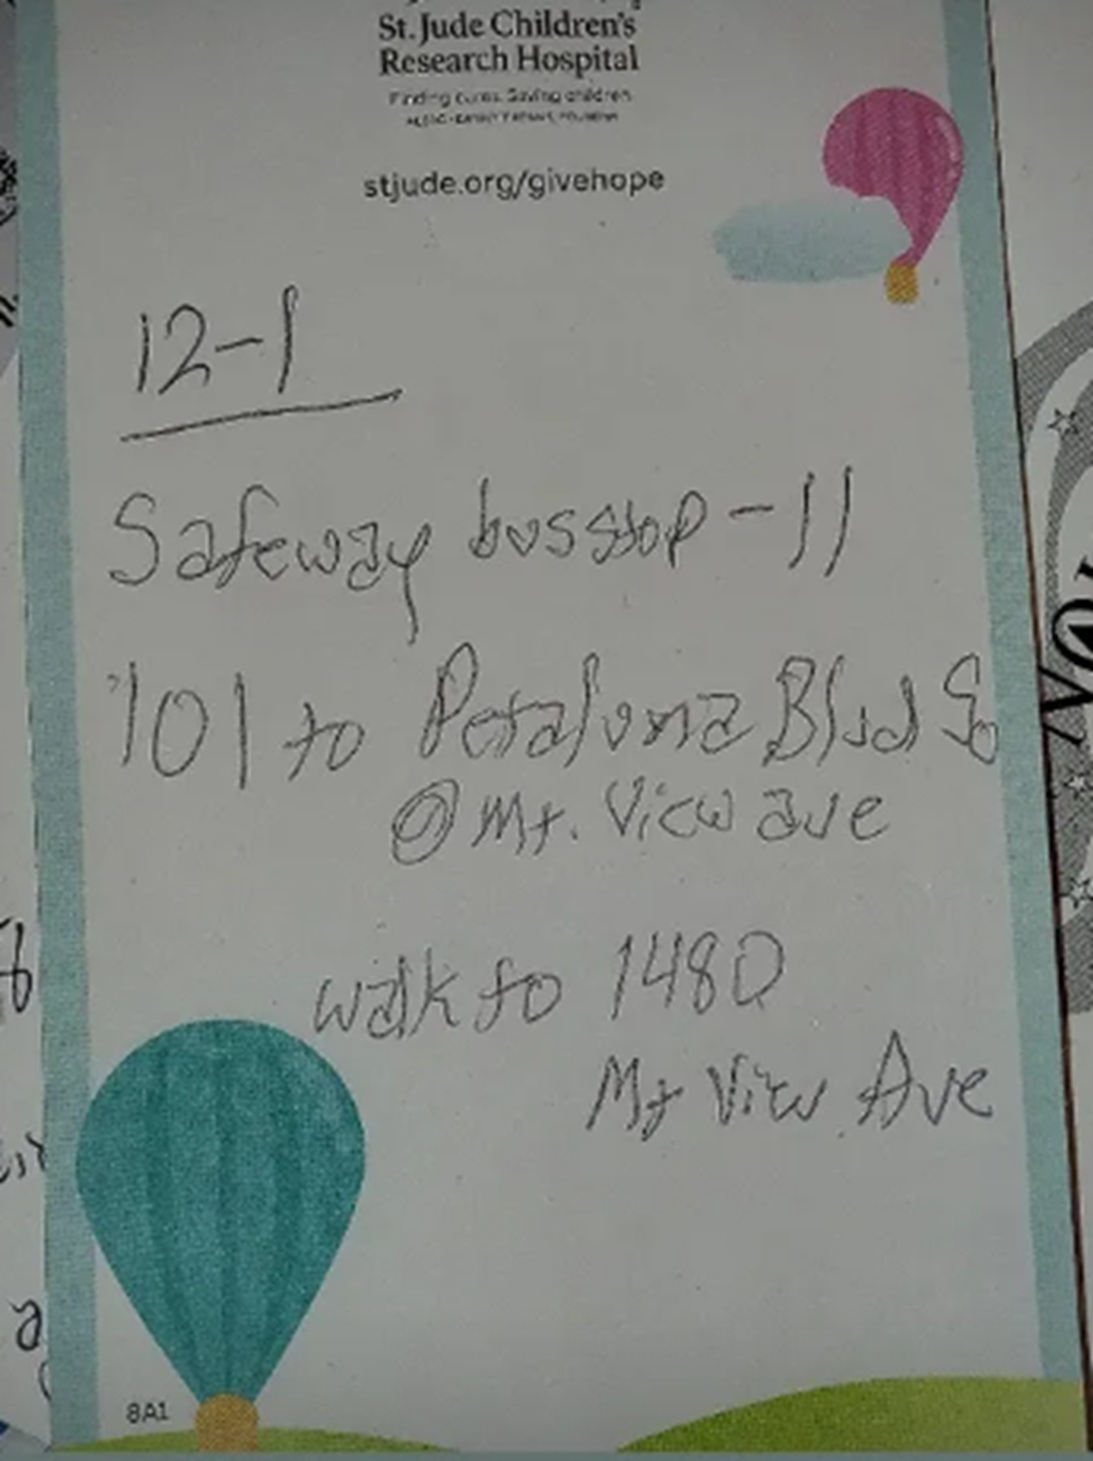 St. Jude Children's
Research Hospital
Finding cures. Saving children.
stjude.org/givehope
12-1
Safeway bus stop - 11
101 to Petaluma Blvd So
@ Mt. View ave
walk to 1480
Mt View Ave
8A1